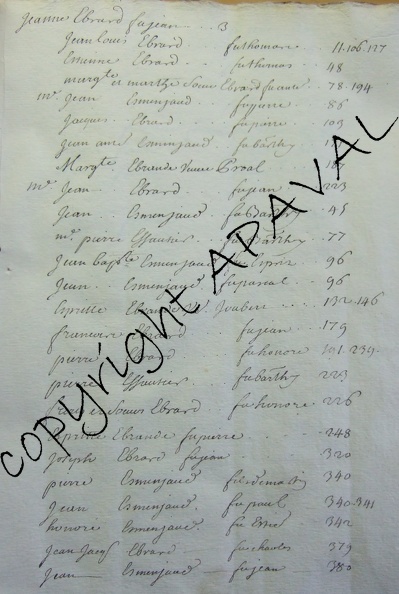 Jeanne Ebrard fu jean . . 3
Jean louis Ebrard . fu thomas . . 11·106·127
Etienne Ebrard . . fu thomas . 48
margte et marthe Sœurs Ebrard fu 78·194
mr Jean Esmenjaud . . fu pierre . . 86
Jacques . Ebrard . . fu pierre . . 103
jean Esmenjaud . fu barthy
Margte Ebrarde veuve Proal . . 187
mr Jean . . Ebrard . . fu jean . 223
Jean . . Esmenjaud . fu Barthy . 45
mr pierre Effautier . . fu Barthy . 77
Jean baptte Esmenjaud . 96
Jean . . Esmenjaud . . 96
Espritte Ebrarde Ve. Joubert . . . . 132·146
francois Ebrard fu jean . . 179
pierre Ebrard fu honore 191·239
pierre Effautier fu barthy . 223
et Sœurs Ebrard . fu honore . 226
Espritte Ebrarde fu pierre . . . . 248
Joseph Ebrard fu jean . . . . 320
pierre Esmenjaud . 340
Jean Esmenjaud . fu paul . 340·341
honore Esmenjaud . fu 342
Jean Jacqs Ebrard . . fu charles . 379
Jean Esmenjaud . fu jean . 380
Copyright APAVAL